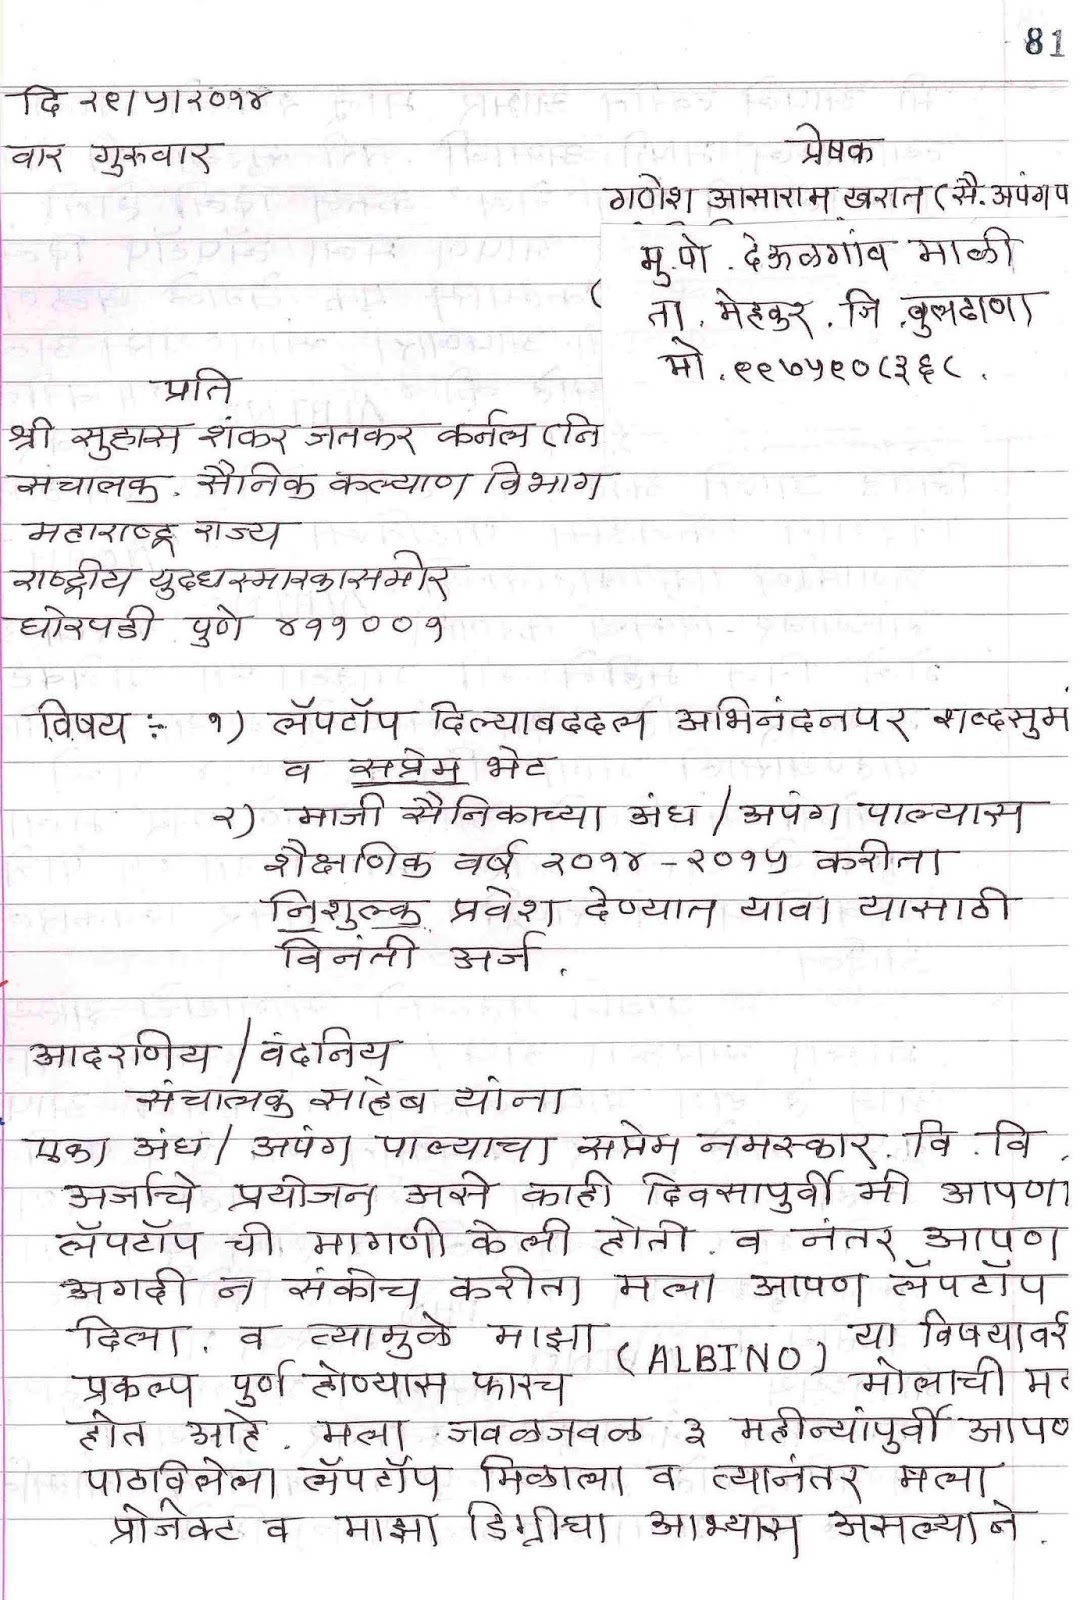 81
दि २९/५/२०१४
वार गुरुवार
प्रेषक
गणेश आसाराम खरात (सै. अपंग प
मु.पो. देऊळगांव माळी
ता. मेहकुर. जि. बुलढाणा
मो. ९९७५९०८३६८.
प्रति
श्री सुहास शंकर जतकर कर्नल (नि
संचालक. सैनिक कल्याण विभाग
महाराष्ट्र राज्य
राष्ट्रीय युध्दस्मारकासमोर
घोरपडी पुणे ४११००१
विषय :- १) लॅपटॉप दिल्याबददल अभिनंदनपर शब्दसुमं
व सप्रेम भेट
२) माजी सैनिकाच्या अंध / अपंग पाल्यास
शैक्षणिक वर्ष २०१४-२०१५ करीता
निशुल्क प्रवेश देण्यात यावा यासाठी
विनंती अर्ज.
आदरणिय / वंदनिय
संचालक साहेब यांना
एका अंध / अपंग पाल्याचा सप्रेम नमस्कार. वि. वि.
अर्जाचे प्रयोजन असे काही दिवसापुर्वी मी आपणा
लॅपटॉप ची मागणी केली होती. व नंतर आपण
अगदी न संकोच करीता मला आपण लॅपटॉप
दिला. व त्यामुळे माझा (ALBINO) या विषयावर
प्रकल्प पुर्ण होण्यास फारच मोलाची मद
होत आहे. मला जवळजवळ ३ महीन्यांपुर्वी आपण
पाठविलेला लॅपटॉप मिळाला व त्यानंतर मला
प्रोजेक्ट व माझा डिग्रीचा आभ्यास असल्याने.